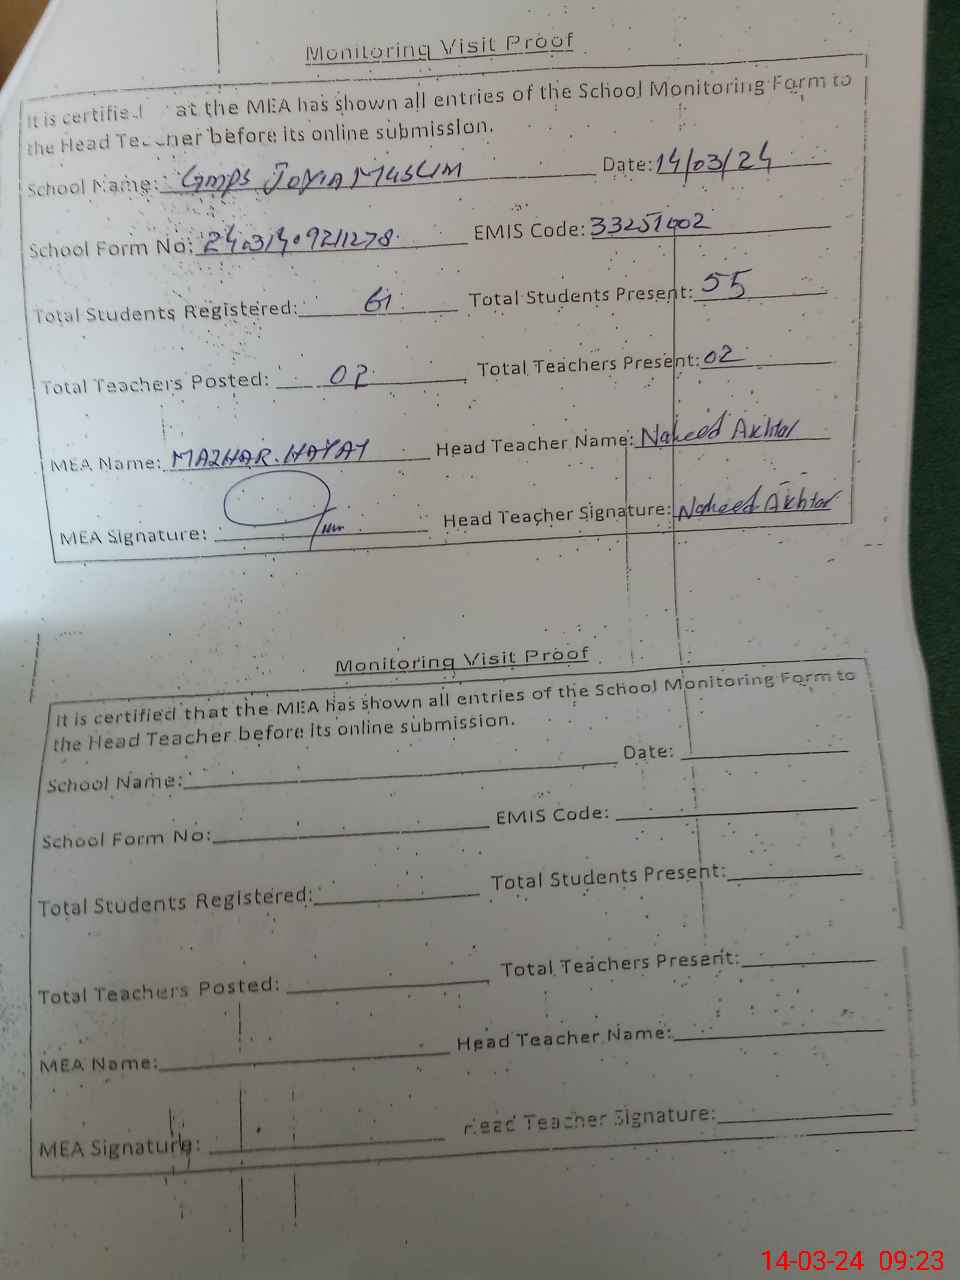 Monitoring Visit Proof
It is certified at the MEA has shown all entries of the School Monitoring Form to
the Head Teacher before its online submission.
School Name: GMPS JOYIA MUSLIM Date: 14/03/24
School Form No: EMIS Code: 33251002
Total Students Registered: 61 Total Students Present: 55
Total Teachers Posted: 02 Total Teachers Present: 02
MEA Name: MAZHAR. HAYAT Head Teacher Name: Naheed Akhtar
MEA Signature: Head Teacher Signature: Naheed Akhtar
Monitoring Visit Proof
It is certified that the MEA has shown all entries of the School Monitoring Form to
the Head Teacher before its online submission.
School Name: Date:
School Form No: EMIS Code:
Total Students Registered: Total Students Present:
Total Teachers Posted: Total Teachers Present:
MEA Name: Head Teacher Name:
MEA Signature: Head Teacher Signature:
14-03-24 09:23